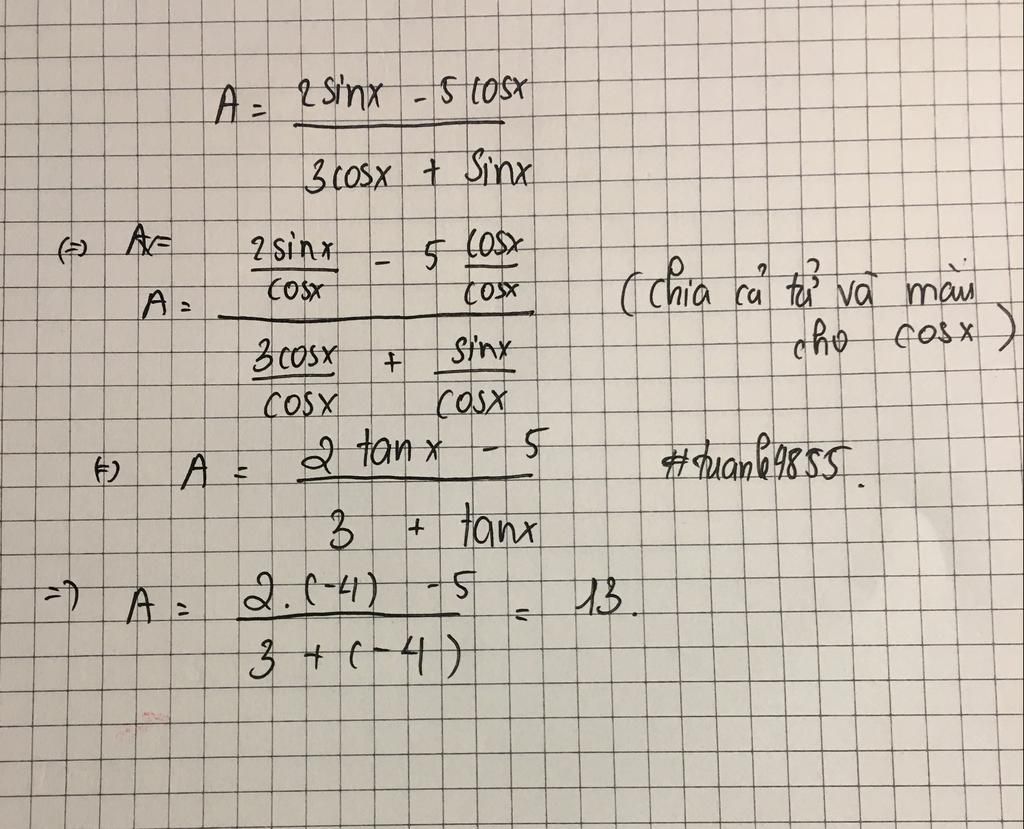 A = (2 sinx - 5 cosx) / (3 cosx + sinx)
(=) A =
A = (2 sinx / cosx - 5 cosx / cosx) / (3 cosx / cosx + sinx / cosx)
(chia cả tử và mẫu
cho cosx)
(=) A = (2 tanx - 5) / (3 + tanx)
=) A = (2. (-4) - 5) / (3 + (-4)) = 13.